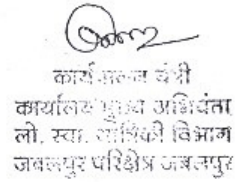 कार्यपालन यंत्री
कार्यालय मुख्य अभियंता
लो. स्वा. यांत्रिकी विभाग
जबलपुर परिक्षेत्र जबलपुर